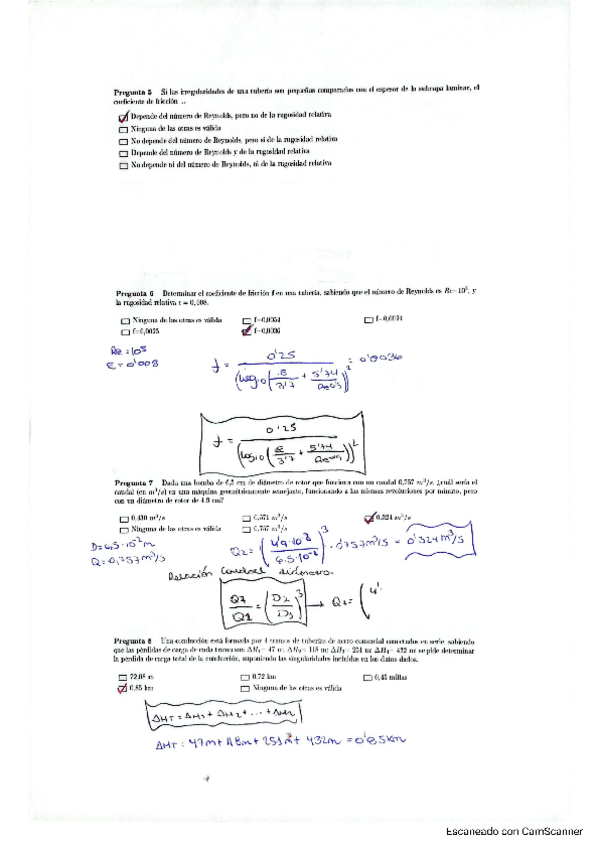 Pregunta 5 Si las irregularidades de una tubería son pequeñas comparadas con el espesor de la subcapa laminar, el
coeficiente de fricción ...
Depende del número de Reynolds, pero no de la rugosidad relativa
Ninguna de las otras es válida
No depende del número de Reynolds, pero si de la rugosidad relativa
Depende del número de Reynolds y de la rugosidad relativa
No depende ni del número de Reynolds, ni de la rugosidad relativa
Pregunta 6 Determinar el coeficiente de fricción f en una tubería, sabiendo que el número de Reynolds es Re=10⁵, y
la rugosidad relativa ε = 0,008.
Ninguna de las otras es válida
f=0,0025
f=0,0036
Re = 10⁵
ε = 0'008
f = 0'25 / (log₁₀(ε/3'7 + 5'74/Re⁰'⁹))² = 0'0036
f = 0'25 / (log₁₀(ε/3'7 + 5'74/Re⁰'⁹))²
Pregunta 7 Dada una bomba de 6,5 cm de diámetro de rotor que funciona con un caudal 0,757 m³/s, ¿cuál sería el
caudal (en m³/s) en una máquina geométricamente semejante, funcionando a las mismas revoluciones por minuto, pero
con un diámetro de rotor de 4.9 cm?
0,430 m³/s 0,571 m³/s 0.324 m³/s
Ninguna de las otras es válida 0,757 m³/s
D=6,5·10⁻² m
Q=0,757 m³/s
Q₂ = (4'9·10⁻² / 6.5·10⁻²)³ · 0'757m³/s = 0'324 m³/s
Relación caudal diámetro
Q2/Q1 = (D2/D1)³ → Q2 = (4'
Pregunta 8 Una conducción está formada por 4 tramos de tuberías de acero comercial conectados en serie, sabiendo
que las pérdidas de carga de cada tramo son ΔH₁= 47 m; ΔH₂= 118 m; ΔH₃= 251 m; ΔH₄= 432 m; se pide determinar
la pérdida de carga total de la conducción, suponiendo las singularidades incluidas en los datos dados.
72,08 m 0.72 km 0,45 millas
0.85 km Ninguna de las otras es válida
ΔHT = ΔH1 + ΔH2 + ... + ΔHn
ΔHT = 47m + 118m + 251m + 432m = 0'85km
Escaneado con CamScanner